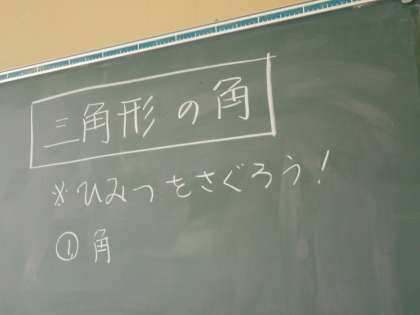 三角形の角
※ひみつをさぐろう!
① 角